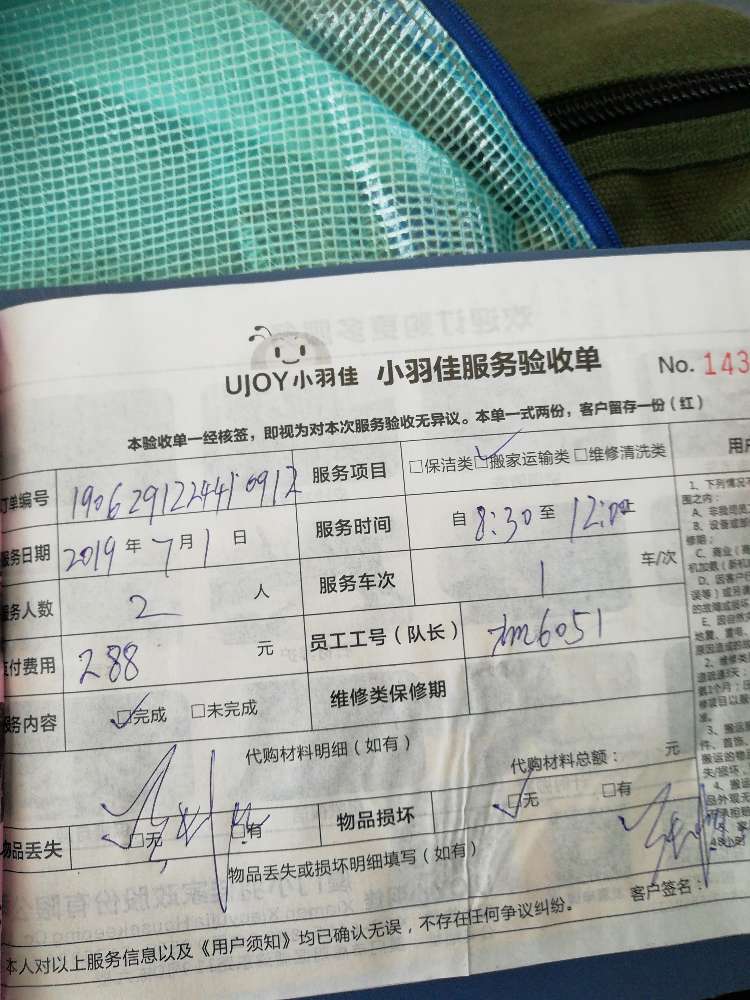 UJOY小羽佳 小羽佳服务验收单 No. 143
本验收单一经核签，即视为对本次服务验收无异议。本单一式两份，客户留存一份（红）
订单编号 1906291224410912 服务项目 □保洁类 ☑搬家运输类 □维修清洗类
服务日期 2019年7月1日 服务时间 自 8:30 至 12:00止
服务人数 2 人 服务车次 1 车/次
支付费用 288 元 员工工号（队长） xm6051
服务内容 ☑完成 □未完成 维修类保修期
代购材料明细（如有） 代购材料总额： 元
物品丢失 ☑无 □有 物品损坏 ☑无 □有
物品丢失或损坏明细填写（如有）
客户签名：
本人对以上服务信息以及《用户须知》均已确认无误，不存在任何争议纠纷。
用户
1、下列情况不
围之内：
A、非我司员工
B、设备或部
修期；
C、商业（
D、因客户
误等）或另
的故障或损坏
E、因自然
原因造成的
2、维修类
准。
3、搬运
件、首饰、
搬运的物
失/损坏，
4、搬运
品外观无